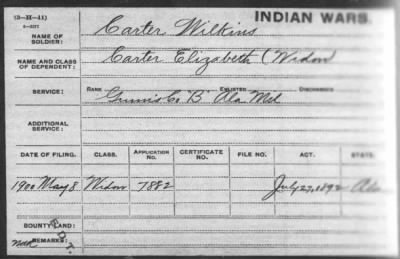 (3-H-41)
INDIAN WARS.
NAME OF SOLDIER: Carter Wilkins
NAME AND CLASS OF DEPENDENT: Carter Elizabeth (Widow)
RANK ENLISTED DISCHARGED
SERVICE: Co "B" Ala Mil
ADDITIONAL SERVICE:
DATE OF FILING. CLASS. APPLICATION No. CERTIFICATE No. FILE NO. ACT. STATE
1900 May 8 Widow 7882 July 27, 1892 Ala
BOUNTY LAND:
REMARKS: